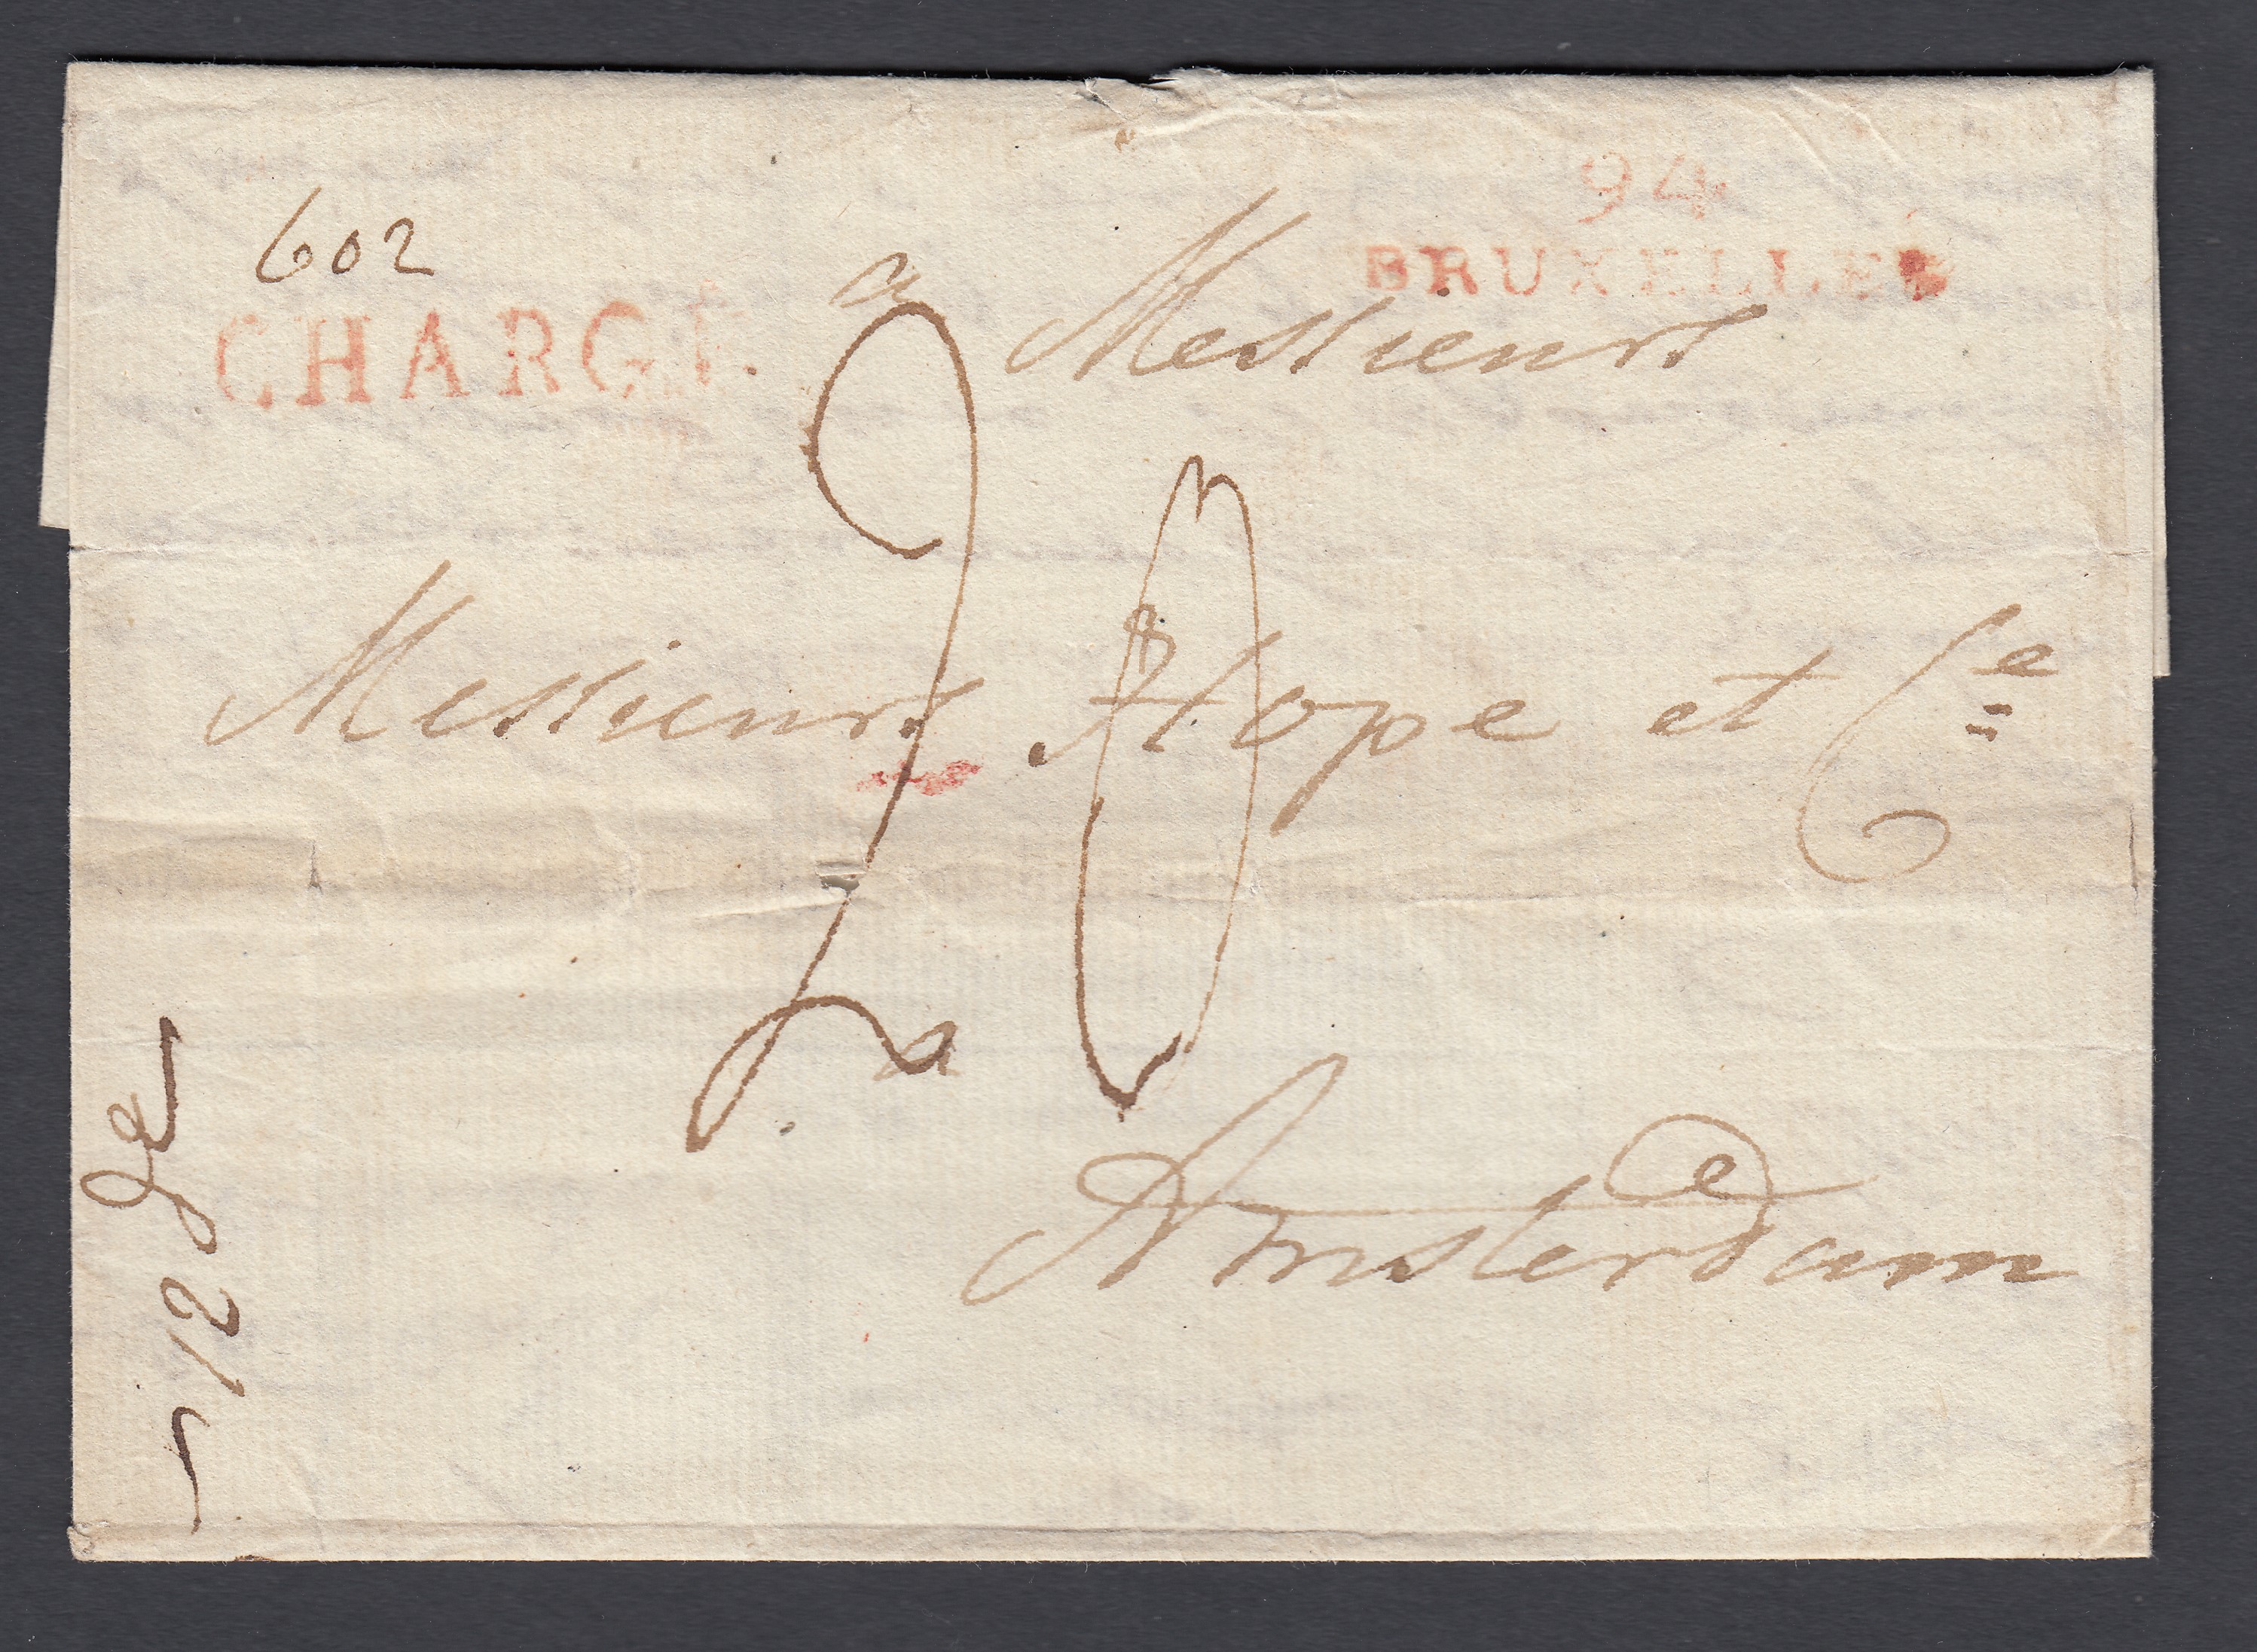 94
BRUXELLES
602
CHARGE
a Messieurs
20
Messieurs Hope et Cie
a
Amsterdam
12